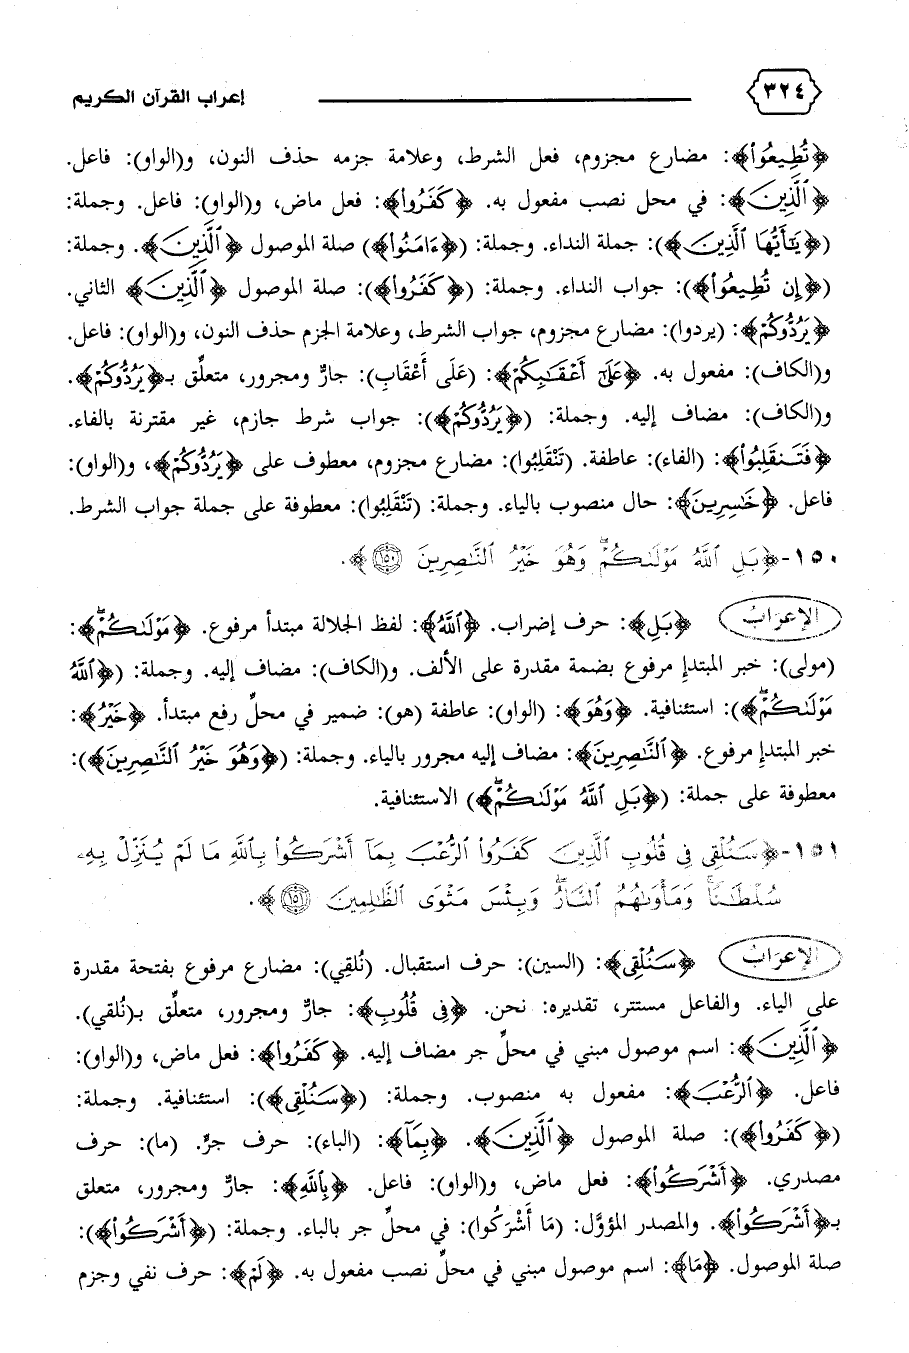 ٣٢٤ إعراب القرآن الكريم
﴿تُطِيعُوا۟﴾: مضارع مجزوم، فعل الشرط، وعلامة جزمه حذف النون، و(الواو): فاعل.
﴿ٱلَّذِينَ﴾: في محل نصب مفعول به. ﴿كَفَرُوا۟﴾: فعل ماض، و(الواو): فاعل. وجملة:
(﴿يَـٰٓأَيُّهَا ٱلَّذِينَ﴾): جملة النداء. وجملة: (﴿ءَامَنُوٓا۟﴾) صلة الموصول ﴿ٱلَّذِينَ﴾. وجملة:
(﴿إِن تُطِيعُوا۟﴾): جواب النداء. وجملة: (﴿كَفَرُوا۟﴾): صلة الموصول ﴿ٱلَّذِينَ﴾ الثاني.
﴿يَرُدُّوكُمْ﴾: (يردوا): مضارع مجزوم، جواب الشرط، وعلامة الجزم حذف النون، و(الواو): فاعل.
و(الكاف): مفعول به. ﴿عَلَىٰٓ أَعْقَـٰبِكُمْ﴾: (عَلَى أَعْقَابِ): جارٌّ ومجرور، متعلِّق بـ﴿يَرُدُّوكُمْ﴾.
و(الكاف): مضاف إليه. وجملة: (﴿يَرُدُّوكُمْ﴾): جواب شرط جازم، غير مقترنة بالفاء.
﴿فَتَنقَلِبُوا۟﴾: (الفاء): عاطفة. (تَنْقَلِبُوا): مضارع مجزوم، معطوف على ﴿يَرُدُّوكُمْ﴾، و(الواو):
فاعل. ﴿خَـٰسِرِينَ﴾: حال منصوب بالياء. وجملة: (تَنْقَلِبُوا): معطوفة على جملة جواب الشرط.
١٥٠-﴿بَلِ ٱللَّهُ مَوْلَىٰكُمْ ۖ وَهُوَ خَيْرُ ٱلنَّـٰصِرِينَ ١٥٠﴾.
الإعراب ﴿بَلِ﴾: حرف إضراب. ﴿ٱللَّهُ﴾: لفظ الجلالة مبتدأ مرفوع. ﴿مَوْلَىٰكُمْ ۖ﴾:
(مولى): خبر المبتدإ مرفوع بضمة مقدرة على الألف. و(الكاف): مضاف إليه. وجملة: (﴿ٱللَّهُ
مَوْلَىٰكُمْ ۖ﴾): استئنافية. ﴿وَهُوَ﴾: (الواو): عاطفة (هو): ضمير في محلِّ رفع مبتدأ. ﴿خَيْرُ﴾:
خبر المبتدإ مرفوع. ﴿ٱلنَّـٰصِرِينَ﴾: مضاف إليه مجرور بالياء. وجملة: (﴿وَهُوَ خَيْرُ ٱلنَّـٰصِرِينَ﴾):
معطوفة على جملة: (﴿بَلِ ٱللَّهُ مَوْلَىٰكُمْ ۖ﴾) الاستئنافية.
١٥١-﴿سَنُلْقِى فِى قُلُوبِ ٱلَّذِينَ كَفَرُوا۟ ٱلرُّعْبَ بِمَآ أَشْرَكُوا۟ بِٱللَّهِ مَا لَمْ يُنَزِّلْ بِهِۦ
سُلْطَـٰنًا ۖ وَمَأْوَىٰهُمُ ٱلنَّارُ ۚ وَبِئْسَ مَثْوَى ٱلظَّـٰلِمِينَ ١٥١﴾.
الإعراب ﴿سَنُلْقِى﴾: (السين): حرف استقبال. (نُلقِي): مضارع مرفوع بفتحة مقدرة
على الياء. والفاعل مستتر، تقديره: نحن. ﴿فِى قُلُوبِ﴾: جارٌّ ومجرور، متعلِّق بـ(نُلقي).
﴿ٱلَّذِينَ﴾: اسم موصول مبني في محلِّ جر مضاف إليه. ﴿كَفَرُوا۟﴾: فعل ماض، و(الواو):
فاعل. ﴿ٱلرُّعْبَ﴾: مفعول به منصوب. وجملة: (﴿سَنُلْقِى﴾): استئنافية. وجملة:
(﴿كَفَرُوا۟﴾): صلة الموصول ﴿ٱلَّذِينَ﴾. ﴿بِمَآ﴾: (الباء): حرف جرٍّ. (ما): حرف
مصدري. ﴿أَشْرَكُوا۟﴾: فعل ماض، و(الواو): فاعل. ﴿بِٱللَّهِ﴾: جارٌّ ومجرور، متعلق
بـ﴿أَشْرَكُوا۟﴾. والمصدر المؤوَّل: (مَا أَشْرَكُوا): في محلِّ جر بالباء. وجملة: (﴿أَشْرَكُوا۟﴾):
صلة الموصول. ﴿مَا﴾: اسم موصول مبني في محلِّ نصب مفعول به. ﴿لَمْ﴾: حرف نفي وجزم